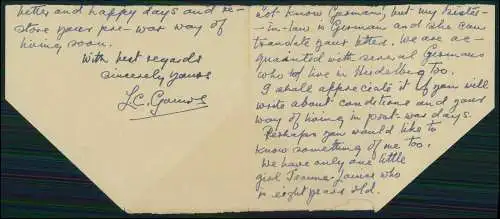 better and happy days and re-
store your pre-war way of
living soon.
With best regards
sincerely yours
L.C.
not know German, but my sister-
-in-law is German and she can
translate your letter. We are ac-
quainted with several Germans
who live in Heidelberg too.
I shall appreciate it if you will
write about conditions and your
way of living in post-war days.
Perhaps you would like to
know something of me too.
We have only one little
girl Jeanne who
is eight years old.